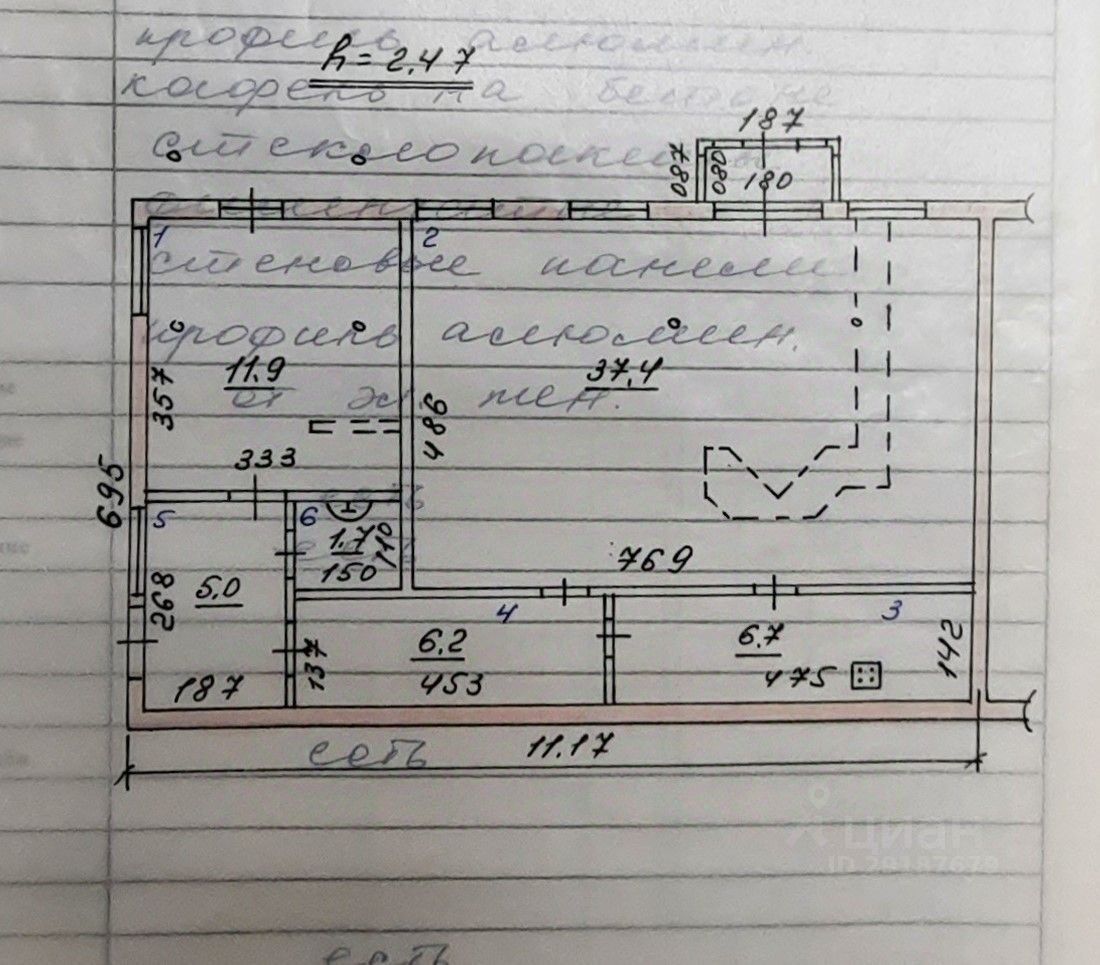 профиль алюмин
h = 2.47
кафель на бетоне
187
стеклопакеты
080 080 180
1 2
стеновые панели
профиль алюмин.
11.9 37.4
357
от эл тен.
486
333
695
есть
5 6
1.7 110
150 769
268 5.0
4 3
6.2 6.7
137 142
187 453 475
есть 11.17
Циан
ID 28187678
есть